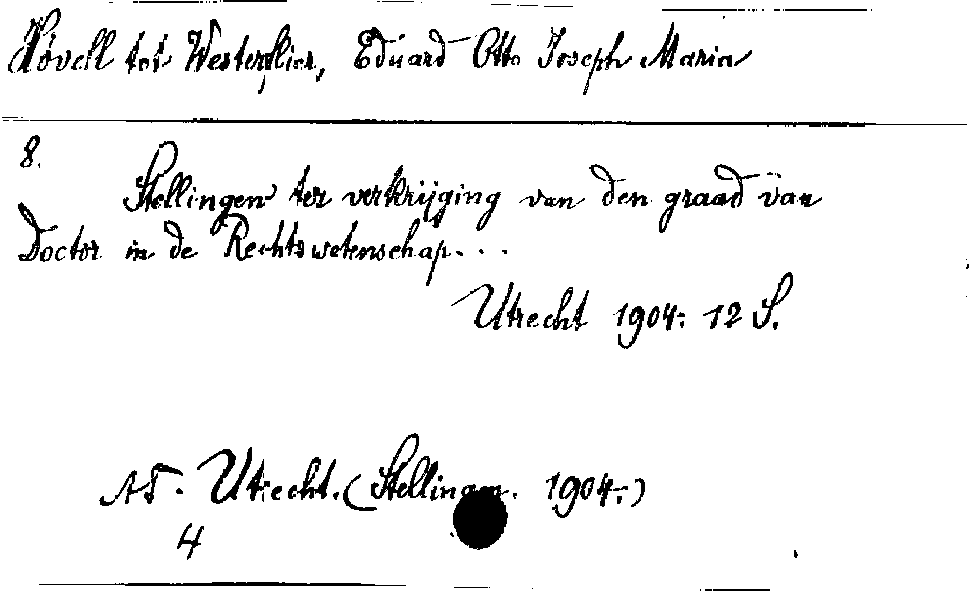 Hövell tot Westerflier, Eduard Otto Joseph Maria
8.
Stellingen ter verkrijging van den graad van
Doctor in de Rechtswetenschap...
Utrecht 1904. 12 S.
AS. Utrecht. (Stellingen. 1904.)
4